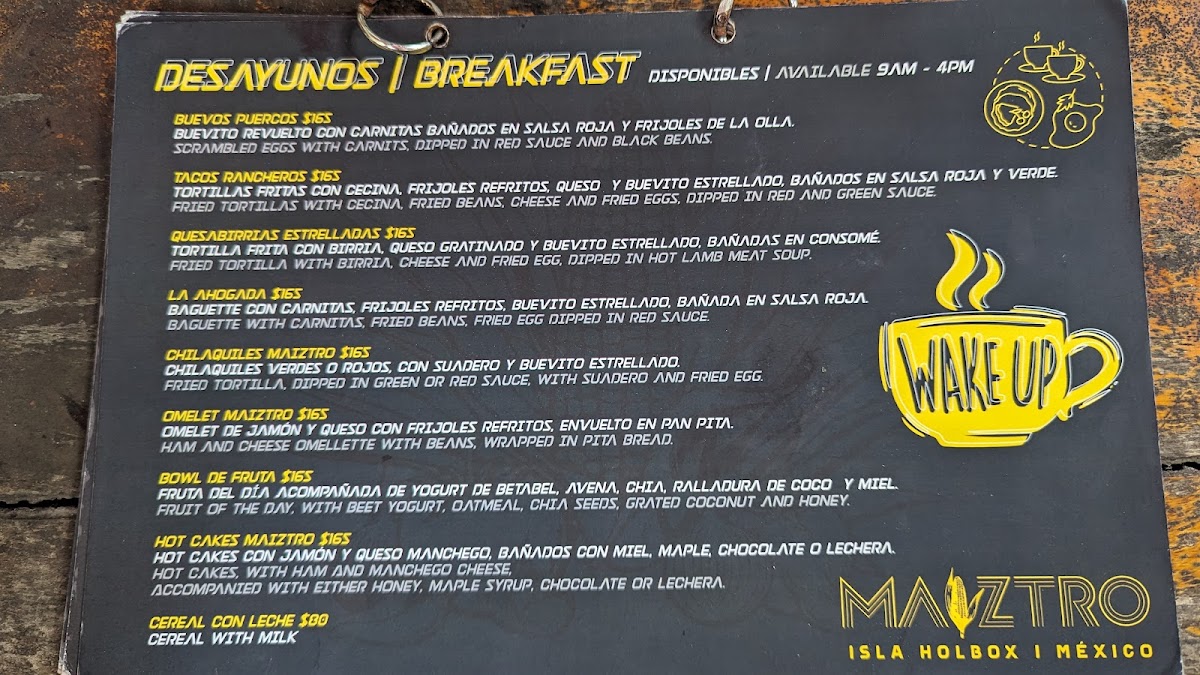 DESAYUNOS | BREAKFAST DISPONIBLES | AVAILABLE 9AM - 4PM
BUEVOS PUERCOS $165
BUEVITO REVUELTO CON CARNITAS BAÑADOS EN SALSA ROJA Y FRIJOLES DE LA OLLA.
SCRAMBLED EGGS WITH CARNITS, DIPPED IN RED SAUCE AND BLACK BEANS.
TACOS RANCHEROS $165
TORTILLAS FRITAS CON CECINA, FRIJOLES REFRITOS, QUESO Y BUEVITO ESTRELLADO, BAÑADOS EN SALSA ROJA Y VERDE.
FRIED TORTILLAS WITH CECINA, FRIED BEANS, CHEESE AND FRIED EGGS, DIPPED IN RED AND GREEN SAUCE.
QUESABIRRIAS ESTRELLADAS $165
TORTILLA FRITA CON BIRRIA, QUESO GRATINADO Y BUEVITO ESTRELLADO, BAÑADAS EN CONSOMÉ.
FRIED TORTILLA WITH BIRRIA, CHEESE AND FRIED EGG, DIPPED IN HOT LAMB MEAT SOUP.
LA AHOGADA $165
BAGUETTE CON CARNITAS, FRIJOLES REFRITOS, BUEVITO ESTRELLADO, BAÑADA EN SALSA ROJA.
BAGUETTE WITH CARNITAS, FRIED BEANS, FRIED EGG DIPPED IN RED SAUCE.
CHILAQUILES MAIZTRO $165
CHILAQUILES VERDES O ROJOS, CON SUADERO Y BUEVITO ESTRELLADO.
FRIED TORTILLA, DIPPED IN GREEN OR RED SAUCE, WITH SUADERO AND FRIED EGG.
WAKE UP
OMELET MAIZTRO $165
OMELET DE JAMÓN Y QUESO CON FRIJOLES REFRITOS, ENVUELTO EN PAN PITA.
HAM AND CHEESE OMELLETTE WITH BEANS, WRAPPED IN PITA BREAD.
BOWL DE FRUTA $165
FRUTA DEL DÍA ACOMPAÑADA DE YOGURT DE BETABEL, AVENA, CHIA, RALLADURA DE COCO Y MIEL.
FRUIT OF THE DAY, WITH BEET YOGURT, OATMEAL, CHIA SEEDS, GRATED COCONUT AND HONEY.
HOT CAKES MAIZTRO $165
HOT CAKES CON JAMÓN Y QUESO MANCHEGO, BAÑADOS CON MIEL, MAPLE, CHOCOLATE O LECHERA.
HOT CAKES, WITH HAM AND MANCHEGO CHEESE,
ACCOMPANIED WITH EITHER HONEY, MAPLE SYRUP, CHOCOLATE OR LECHERA.
CEREAL CON LECHE $80
CEREAL WITH MILK
MAIZTRO
ISLA HOLBOX | MÉXICO